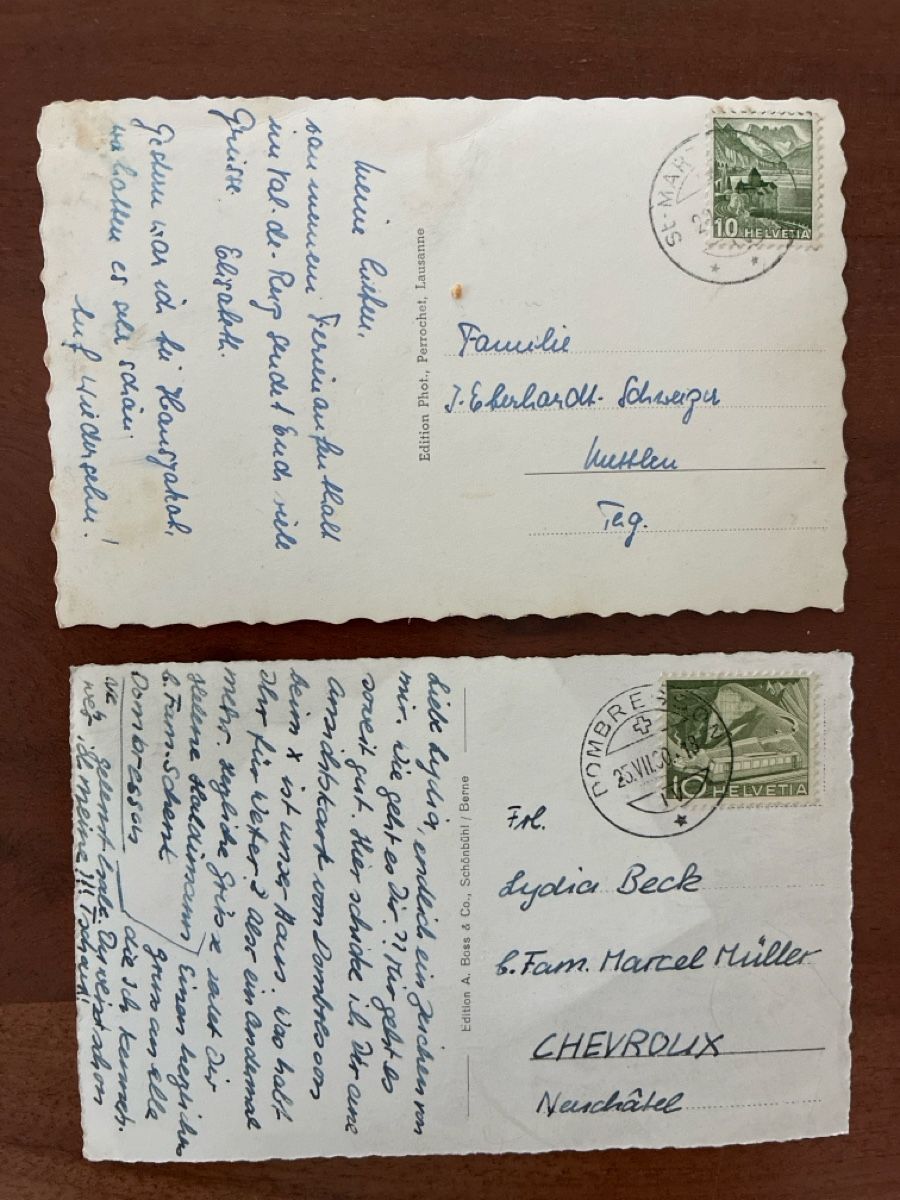 Meine Lieben,
von meinem Ferienaufenthalt
im Val-de-Ruz sendet Euch viele
Grüsse Elisabeth.
Gestern war ich bei
wir hatten es sehr schön.
Auf Wiedersehn!
Edition Phot., Perrochet, Lausanne
St-MAR
10 HELVETIA
Familie
J. Eberhardt-Schweizer
Mettlen
Tg.
Liebe Lydia, endlich ein Zeichen von
mir. Wie geht es Dir?? Mir geht es
soweit gut. Hier schicke ich Dir eine
Ansichtskarte von Dombresson
beim X ist unser Haus. Was habt
Ihr für Wetter? Aber ein andermal
mehr. Herzliche Grüsse sendet Dir
Helene Haldimann Einen herzlichen
b. Fam. Schenk Gruss an alle
Dombresson die ich kennen
gelernt habe. Du weisst schon
wer ich meine!!! Tschau!
Edition A. Boss & Co., Schönbühl / Berne
DOMBRESSON
25.VII.50. 18
10 HELVETIA
Frl.
Lydia Beck
b. Fam. Marcel Müller
CHEVROUX
Neuchâtel